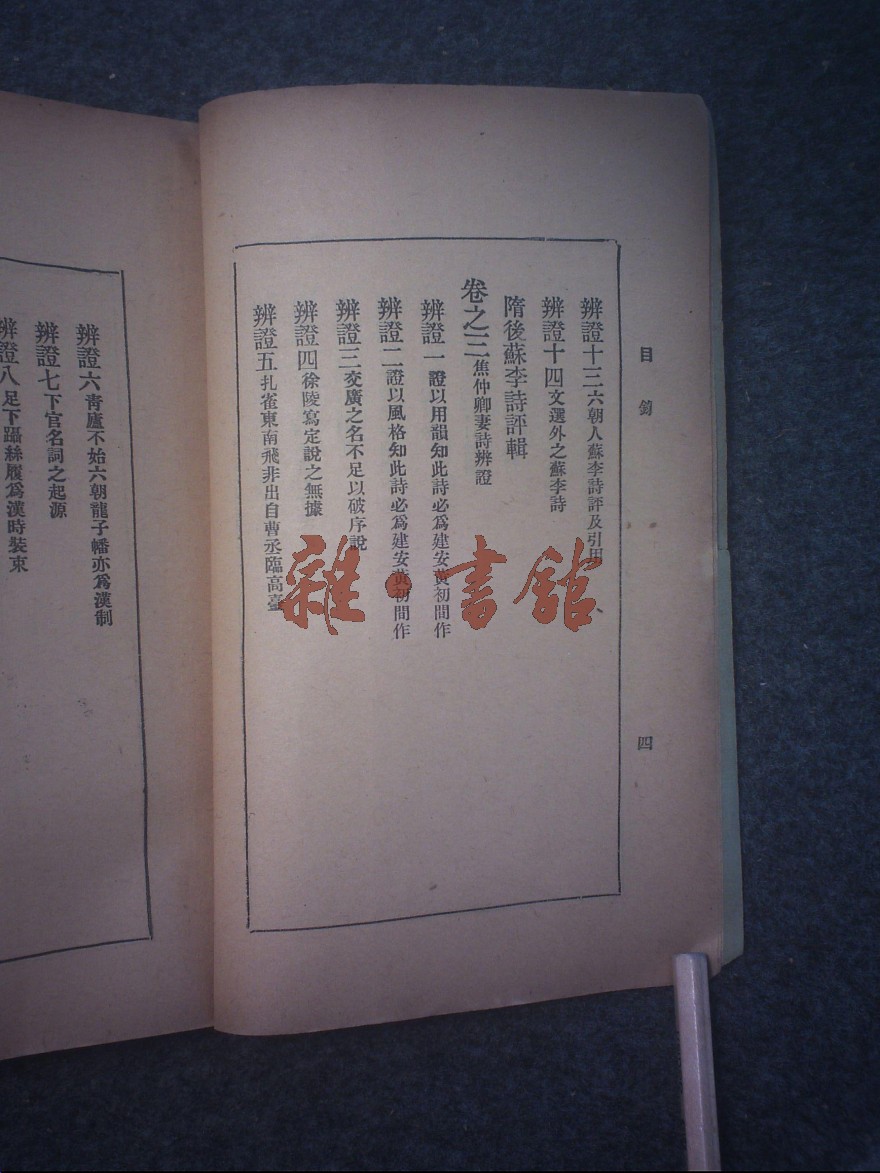 目錄
四
辨證十三六朝人蘇李詩評及引用
辨證十四文選外之蘇李詩
隋後蘇李詩評輯
卷之三焦仲卿妻詩辨證
辨證一證以用韻知此詩必爲建安黃初間作
辨證二證以風格知此詩必爲建安黃初間作
辨證三交廣之名不足以破序說
辨證四徐陵寫定說之無據
辨證五孔雀東南飛非出自曹丕臨高臺
辨證六青廬不始六朝龍子幡亦爲漢制
辨證七下官名詞之起源
辨證八足下躡絲履爲漢時裝束
雜·書館